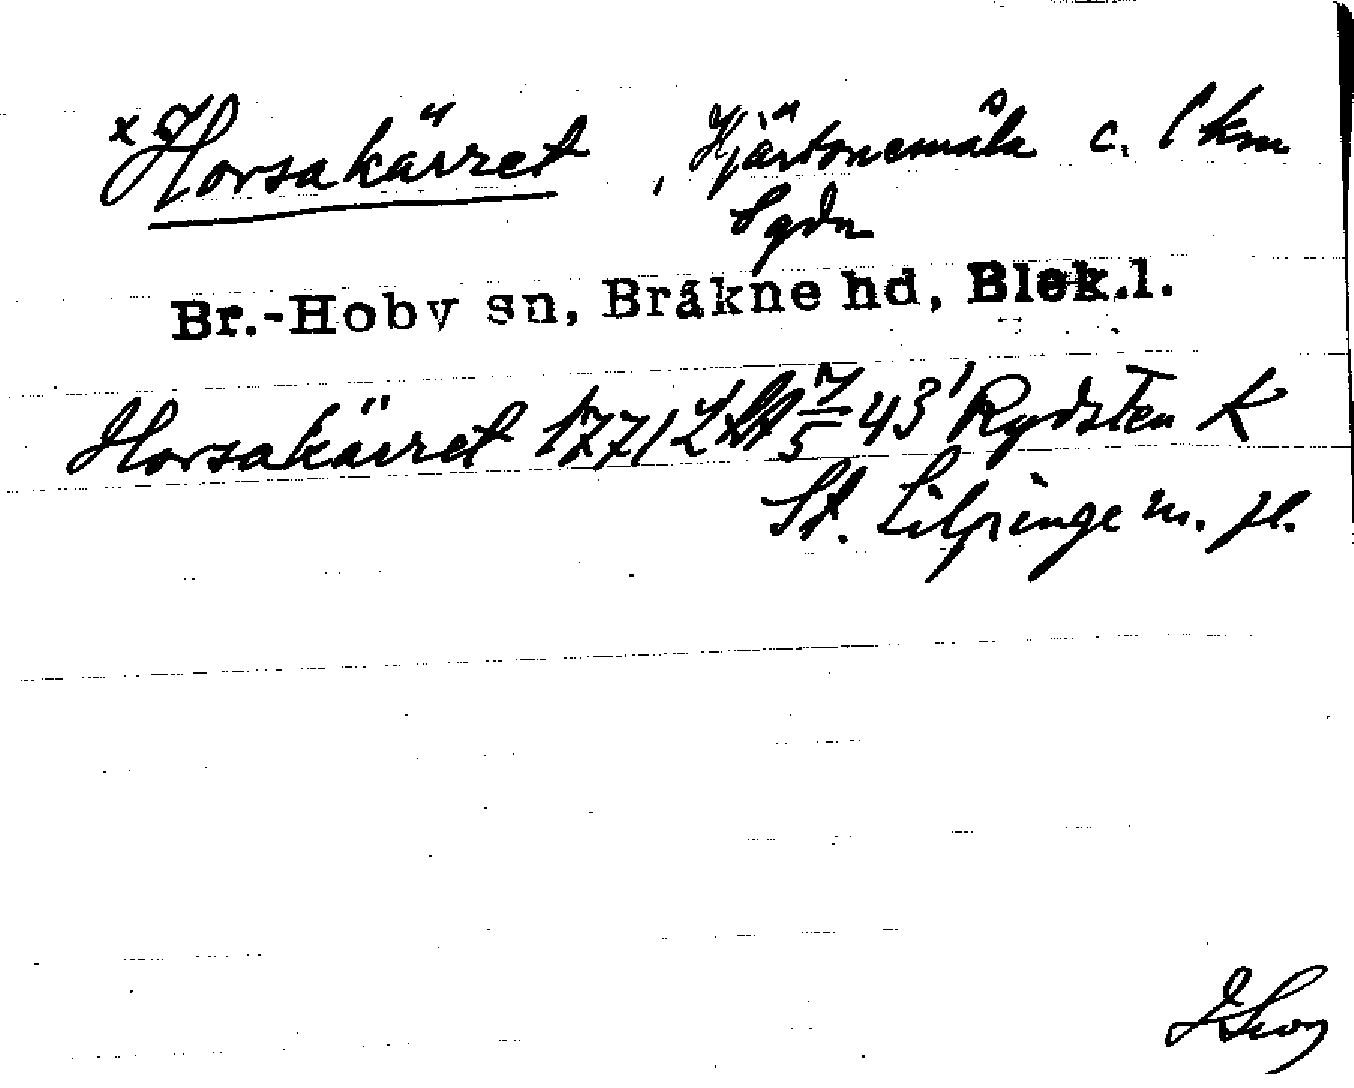 × Horsakärret, Hjärtonemåla c. 1 km
S gdn
Br.-Hoby sn, Bräkne hd, Blek.l.
Horsakärret 1771 LSA 7/5 43' Rydsten K
St. Silpinge m. fl.